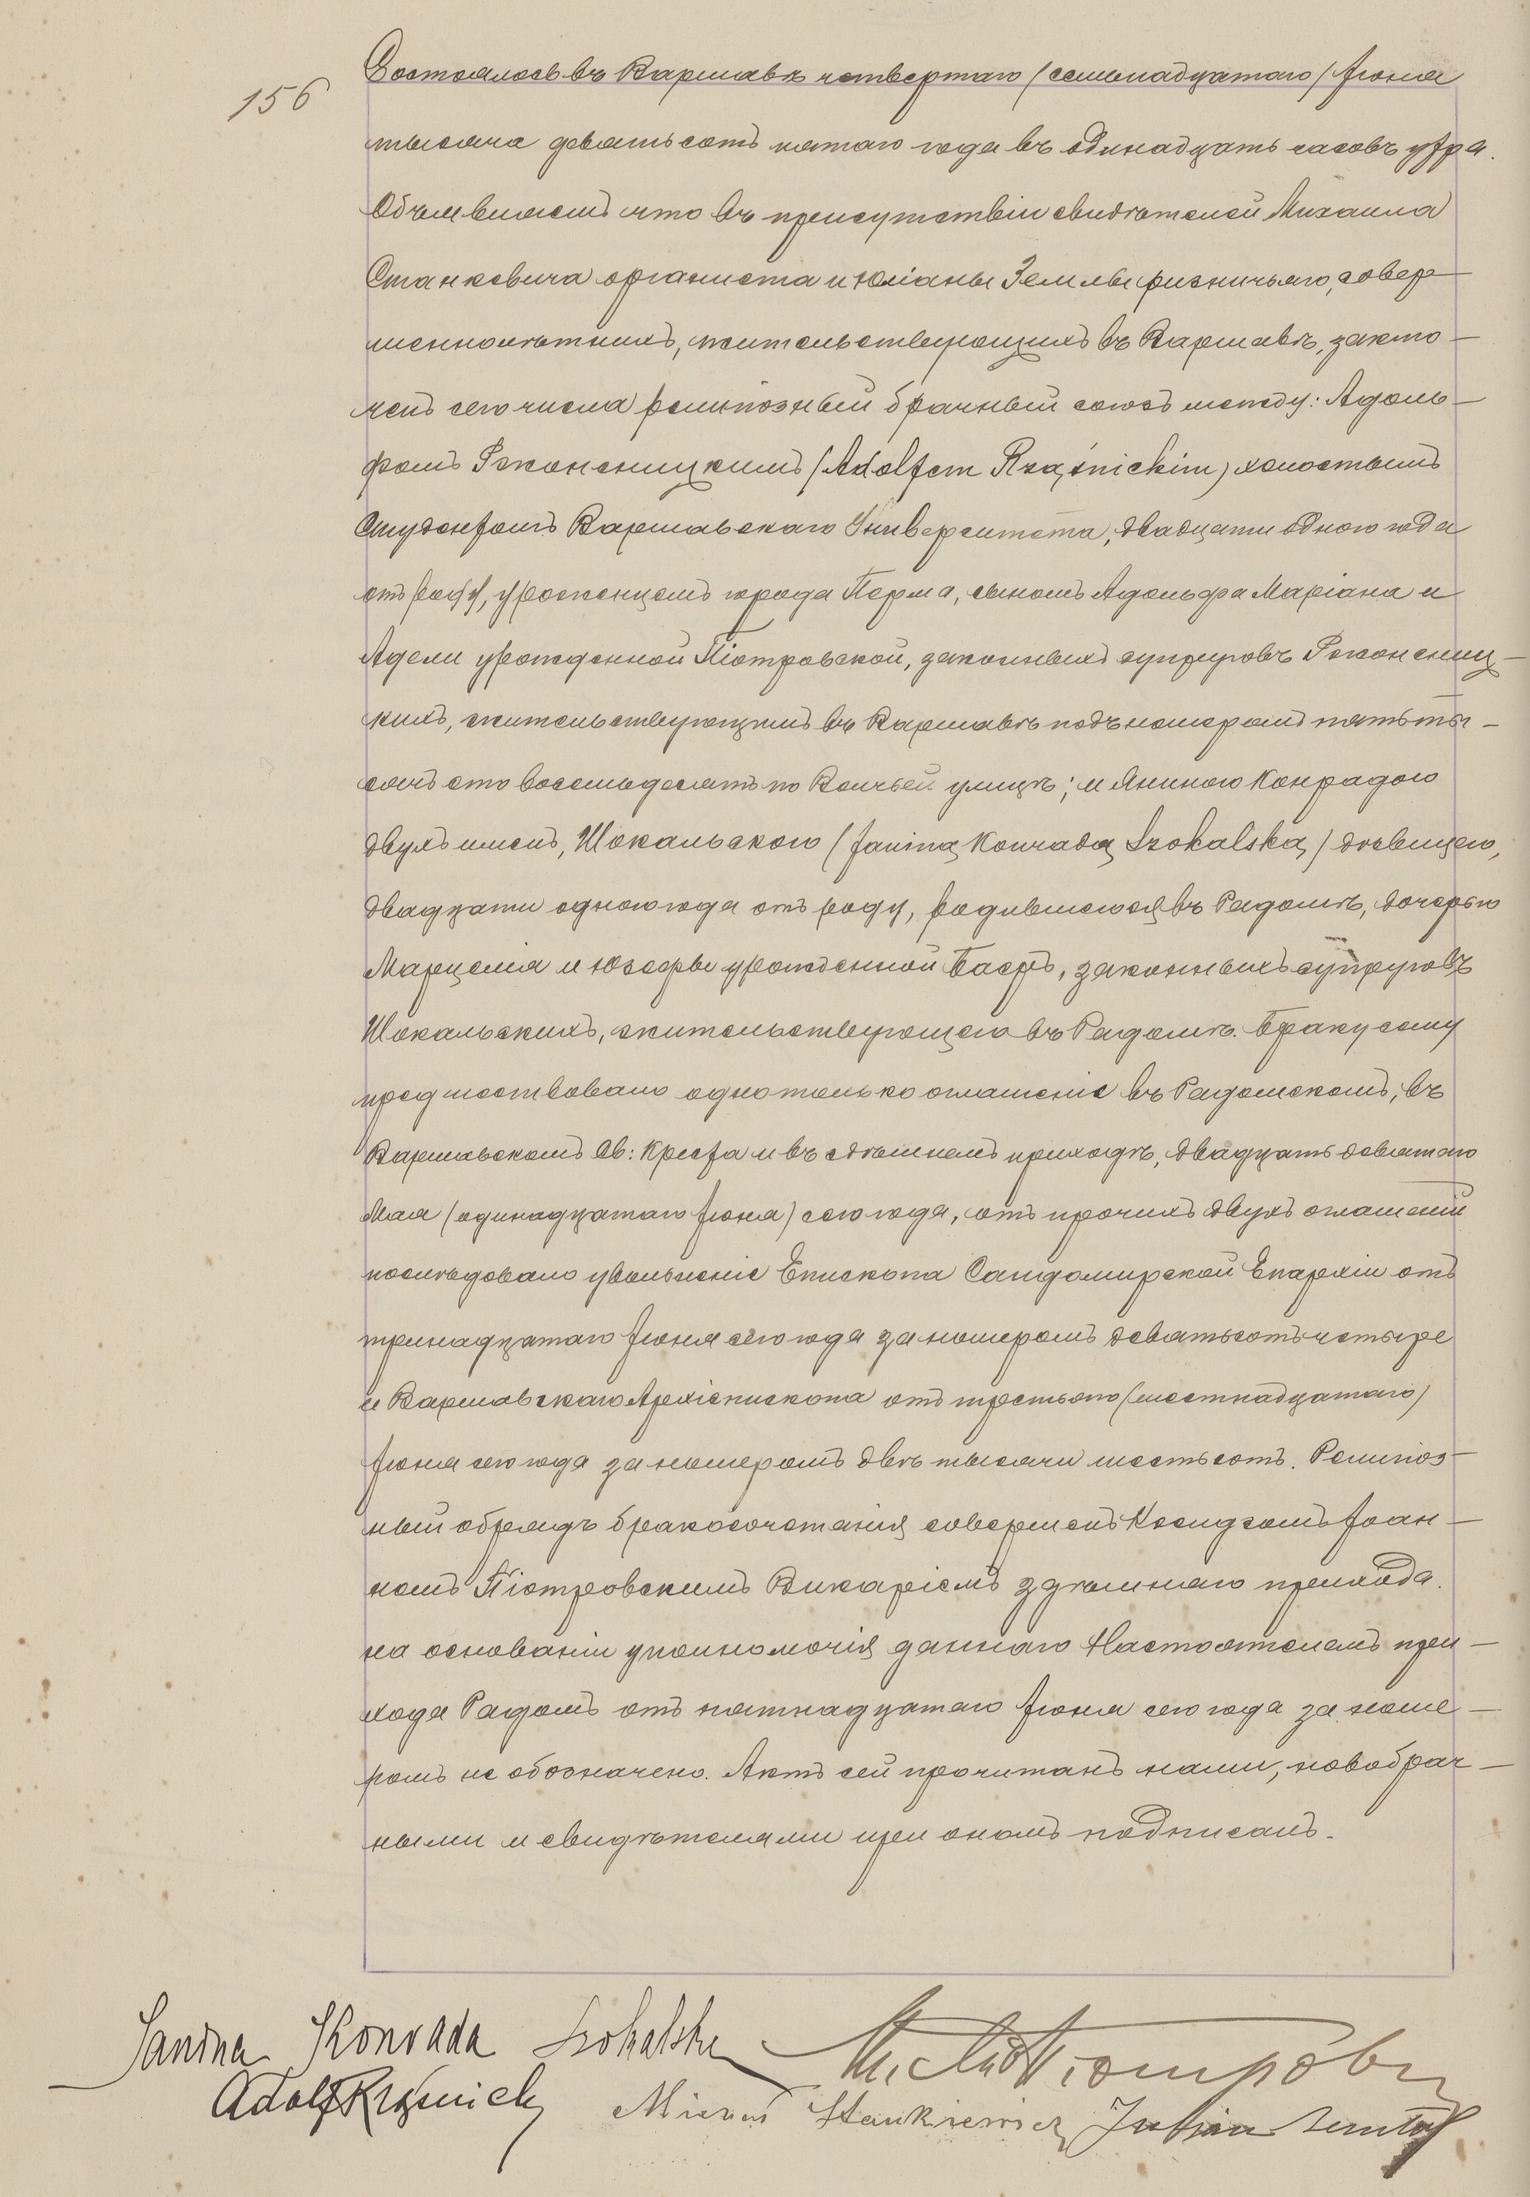 156
Состоялось въ Варшавѣ четвертаго /семнадцатаго/ Іюня
тысяча девятьсотъ пятаго года въ одинадцать часовъ утра.
Объявляемъ что въ присутствіи свидѣтелей Михаила
Станкевича органиста и Юліаны Земялы ризничьяго, совер-
шеннолѣтнихъ, жительствующихъ въ Варшавѣ, заклю-
ченъ сего числа религіозный брачный союзъ между: Адоль-
фомъ Ржонсницкимъ /Adolfem Rząśnickim/ холостымъ
Студентомъ Варшавскаго Университета, двадцати одного года
отъ роду, уроженцемъ города Перма, сыномъ Адольфа Маріана и
Адели урожденной Піотровской, законныхъ супруговъ Ржонсниц-
кихъ, жительствующимъ въ Варшавѣ подъ номеромъ пять ты-
сячъ сто восемьдесятъ по Волчьей улицѣ; и Яниною Конрадою
двухъ именъ, Шокальскою /Janiną Konradą Szokalską/ дѣвицею,
двадцати одного года отъ роду, родившеюся въ Радомѣ, дочерью
Марцелія и Юзефы урожденной законныхъ супруговъ
Шокальскихъ, жительствующею въ Радомѣ. Браку сему
предшествовало одно только оглашеніе въ Радомскомъ, въ
Варшавскомъ Св: Креста и въ сдѣшнемъ приходѣ, двадцать девятаго
Мая /одинадцатаго Іюня/ сего года, отъ прочихъ двухъ оглашеній
послѣдовало увольненіе Епископа Сандомирской Епархіи отъ
тринадцатаго Іюня сего года за номеромъ девятьсотъ четыре
и Варшавскаго Архіепископа отъ третьяго /шестнадцатаго/
Іюня сего года за номеромъ двѣ тысячи шестьсотъ. Религіоз-
ный обрядъ бракосочетанія совершенъ Ксендзомъ Іоан-
номъ Піотровскимъ Викаріемъ здѣшняго прихода.
на основаніи уполномочія даннаго Настоятелемъ при-
хода Радомъ отъ пятнадцатаго Іюня сего года за номе-
ромъ не обозначено. Актъ сей прочитанъ нами, новобрач-
ными и свидѣтелями при ономъ подписанъ.
Janina Konrada Szokalska
Піотровс
Adolf Rząśnicki Stankiewicz Julian